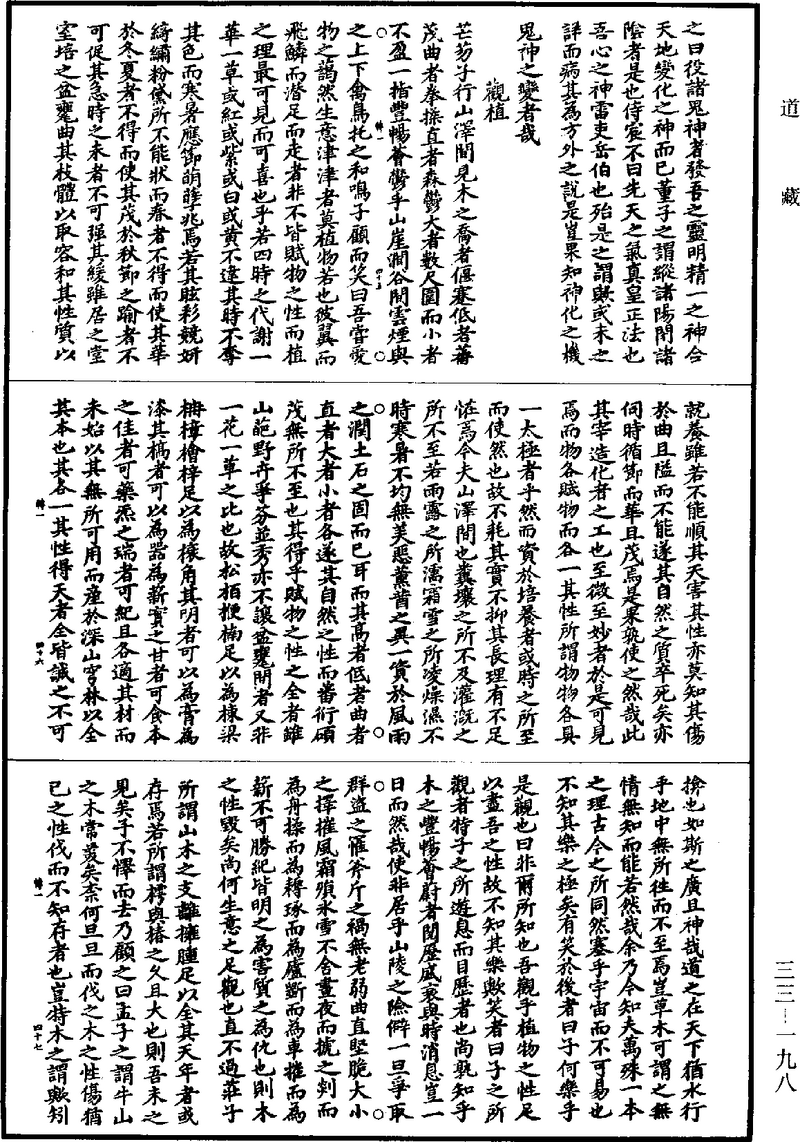 道藏
之曰役諸鬼神者發吾之靈明精一之神合
天地變化之神而已董子之謂縱諸陽閉諸
陰者是也侍宸不曰先天之氣真皇正法也
吾心之神雷吏岳伯也殆是之謂歟或未之
詳而病其為方外之說是豈果知神化之機
鬼神之變者哉
觀植
芒芴子行山澤間見木之喬者偃蹇低者蕃
茂曲者拳操直者森鬱大者數尺圍而小者
不盈一指豐暢薈鬱乎山崖澗谷間雲煙與
之上下禽鳥托之和鳴子顧而笑曰吾嘗愛
物之藹然生意津津者莫植物若也彼翼而
飛鱗而潛足而走者非不皆賦物之性而植
之理最可見而可喜也乎若四時之代謝一
華一草或紅或紫或白或黃不違其時不奪
其色而寒暑應節萌孽兆焉若其眩彩競妍
綺繡粉黛所不能狀而春者不得而使其華
於冬夏者不得而使其茂於秋節之踰者不
可促其急時之未者不可强其緩雖居之堂
室培之盆甕曲其枝體以取容和其性質以
就養雖若不能順其天害其性亦莫知其傷
於曲且隘而不能遂其自然之質卒死矣亦
伺時循節而華且茂焉是果孰使之然哉此
其宰造化者之工也至微至妙者於是可見
焉而物各賦物而各一其性所謂物物各具
一太極者乎然而資於培養者或時之所至
而使然也故不耗其實不抑其長理有不足
恠焉今夫山澤間也糞壤之所不及灌溉之
所不至若雨露之所濡霜雪之所凌燥濕不
時寒暑不均無美惡薰蕕之異一資於風雨
之潤土石之固而已耳而其高者低者曲者
直者大者小者各遂其自然之性而蕃衍碩
茂無所不至也其得乎賦物之性之全者雖
山葩野卉爭芬並秀亦不讓盆甕間者又非
一花一草之比也故松栢楩楠足以為棟梁
栴樟檜梓足以為榱角其明者可以為膏為
漆其槁者可以為器為薪實之甘者可食本
之佳者可藥炁之瑞者可紀且各適其材而
未始以其無所可用而產於深山窮林以全
其本也其各一其性得天者全皆誠之不可
揜也如斯之廣且神哉道之在天下猶水行
乎地中無所往而不至焉豈草木可謂之無
情無知而能若然哉余乃今知夫萬殊一本
之理古今之所同然塞乎宇宙而不可易也
不知其樂之極矣有笑於後者曰子何樂乎
是觀也曰非爾所知也吾觀乎植物之性足
以盡吾之性故不知其樂歟笑者曰子之所
觀者特子之所遊息而目歷者也尚孰知乎
木之豐暢薈蔚者閱歷盛衰與時消息豈一
日而然哉使非居乎山陵之險僻一旦爭取
群盜之罹斧斤之禍無老弱曲直堅脆大小
之擇摧風霜殞氷雪不舍晝夜而摭之刳而
為舟揉而為耨琢而為廬斲而為車摧而為
薪不可勝紀皆明之為害質之為仇也則木
之性毀矣尚何生意之足觀也直不過莊子
所謂山木之支離擁腫足以全其天年者或
存焉若所謂樗與椿之久且大也則吾未之
見矣子不懌而去乃顧之曰孟子之謂牛山
之木嘗羙矣柰何旦旦而伐之木之性傷猶
已之性伐而不知存者也豈特木之謂歟矧
峴一
四十五
峴一
四十六
峴一
四十七
三三—一九八